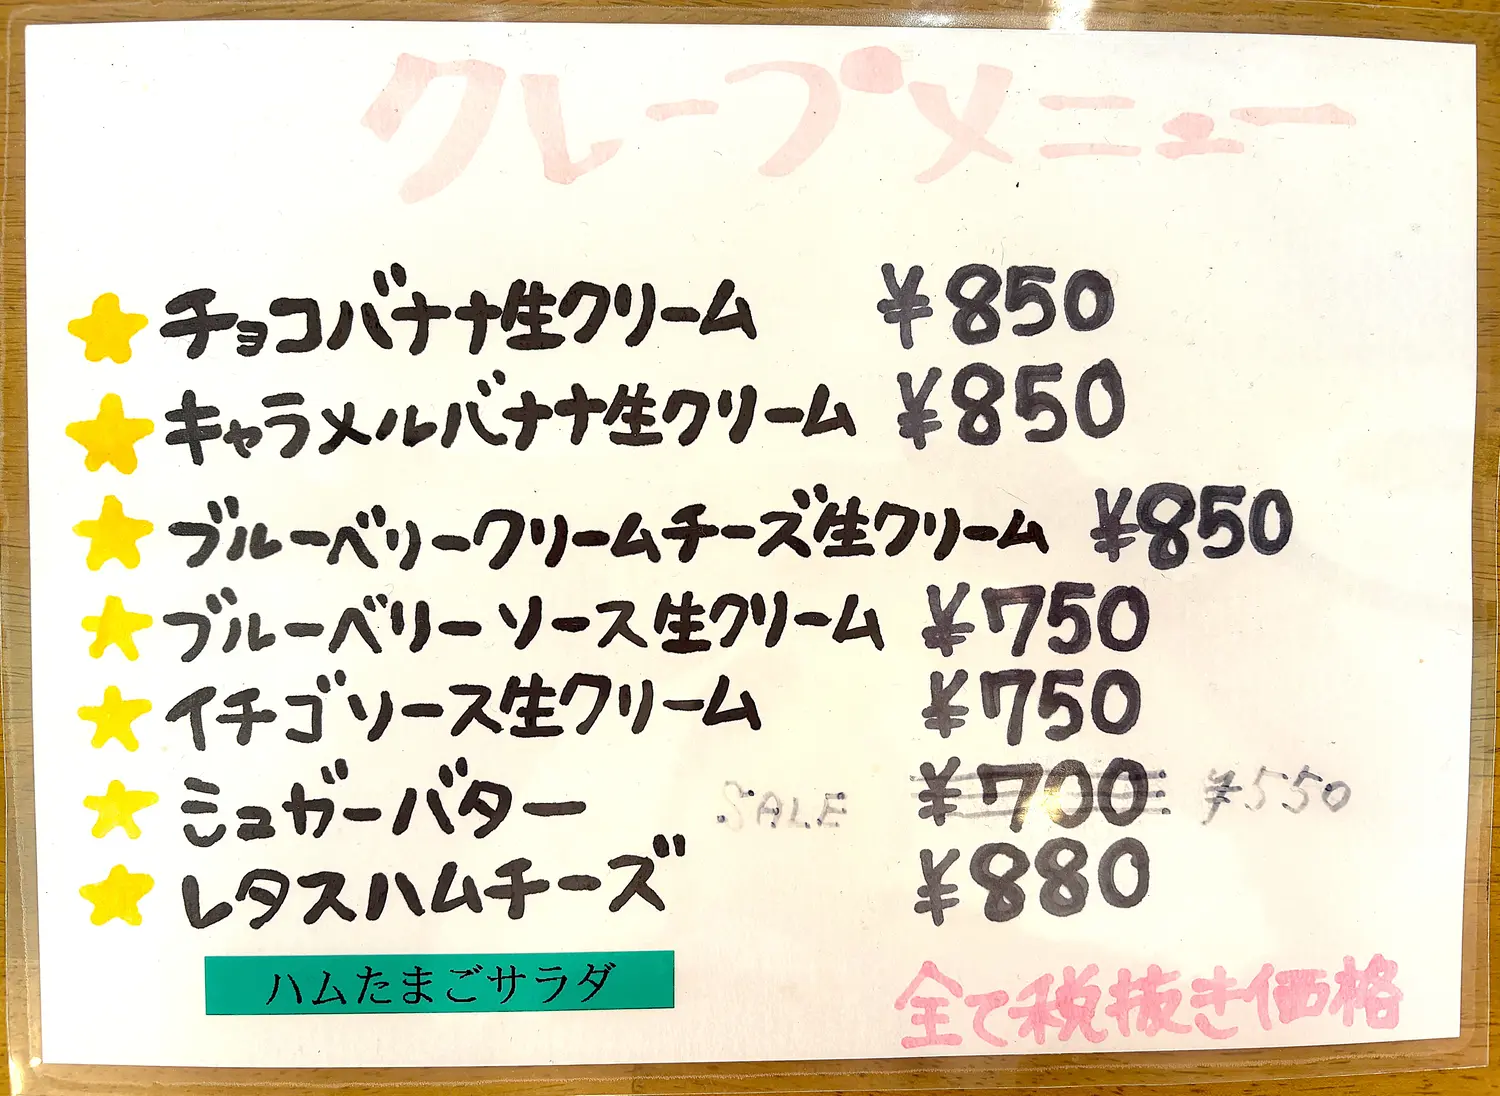 クレープメニュー
チョコバナナ生クリーム ¥850
キャラメルバナナ生クリーム ¥850
ブルーベリークリームチーズ生クリーム ¥850
ブルーベリーソース生クリーム ¥750
イチゴソース生クリーム ¥750
ミュガーバター SALE ¥700 ¥550
レタスハムチーズ ¥880
ハムたまごサラダ
全て税抜き価格